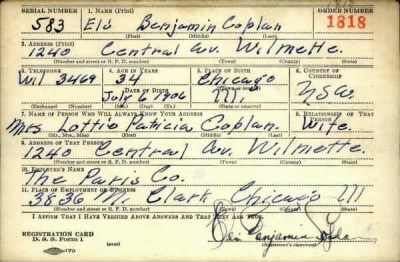 SERIAL NUMBER 1. NAME (Print) ORDER NUMBER
583 Eli Benjamin Coplan 1818
(First) (Middle) (Last)
2. ADDRESS (Print)
1240 Central Av. Wilmette.
(Number and street or R. F. D. number) (Town) (County) (State)
3. TELEPHONE 4. AGE IN YEARS 5. PLACE OF BIRTH 6. COUNTRY OF CITIZENSHIP
Wil 3469 34 Chicago
DATE OF BIRTH (Town or county)
July 6 1906 Ill. USA
(Exchange) (No.) (Mo.) (Day) (Yr.) (State or country)
7. NAME OF PERSON WHO WILL ALWAYS KNOW YOUR ADDRESS 8. RELATIONSHIP OF THAT PERSON
Mrs Lottie Patricia Coplan. Wife.
(Mr., Mrs., Miss) (First) (Middle) (Last)
9. ADDRESS OF THAT PERSON
1240 Central Av. Wilmette.
(Number and street or R. F. D. number) (Town) (County) (State)
10. EMPLOYER'S NAME
The Paris Co.
11. PLACE OF EMPLOYMENT OR BUSINESS
3836 N. Clark Chicago Ill
(Number and street or R. F. D. number) (Town) (County) (State)
I AFFIRM THAT I HAVE VERIFIED ABOVE ANSWERS AND THAT THEY ARE TRUE.
REGISTRATION CARD
D. S. S. Form 1 (over) Eli Benjamin Coplan
(Registrant's signature)